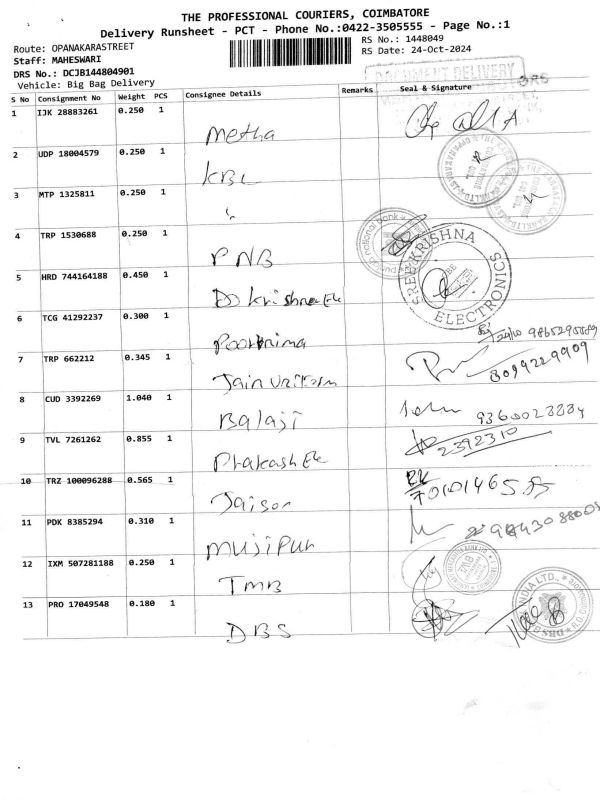 THE PROFESSIONAL COURIERS, COIMBATORE
Delivery Runsheet - PCT - Phone No.:0422-3505555 - Page No.:1
Route: OPANAKARASTREET RS No.: 1448049
Staff: MAHESWARI RS Date: 24-Oct-2024
DRS No.: DCJB144804901
Vehicle: Big Bag Delivery
DOCUMENT DELIVERY
S No Consignment No Weight PCS Consignee Details Remarks Seal & Signature
1 IJK 28883261 0.250 1 Metha
2 UDP 18004579 0.250 1 KBL
3 MTP 1325811 0.250 1 "
4 TRP 1530688 0.250 1 PNB
5 HRD 744164188 0.450 1
SREE KRISHNA ELECTRONICS
6 TCG 41292237 0.300 1 Poornima
7 TRP 662212 0.345 1 Jain
8099229909
8 CUD 3392269 1.040 1 Balaji
9 TVL 7261262 0.855 1 Prakash Ele
2392310
10 TRZ 100096288 0.565 1 Jaison
11 PDK 8385294 0.310 1 Mujipur
12 IXM 507281188 0.250 1 TMB
13 PRO 17049548 0.180 1 DBS